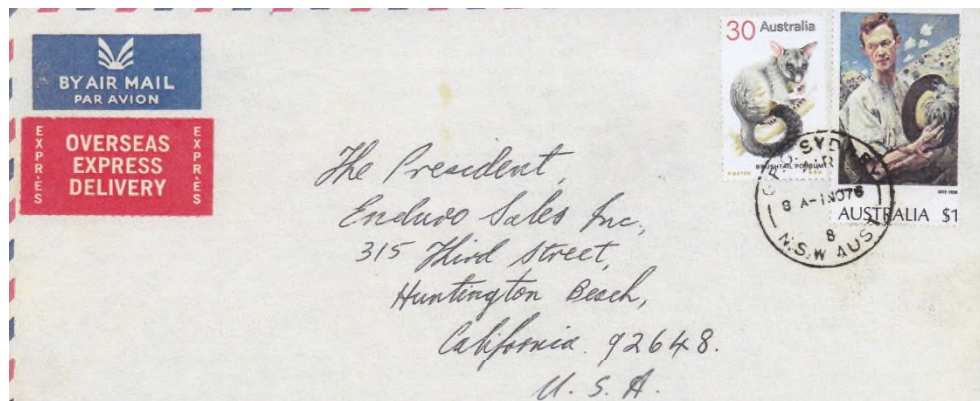 BY AIR MAIL
PAR AVION
EXPRES
OVERSEAS
EXPRESS
DELIVERY
EXPRES
30 Australia
BRUSHTAIL POSSUM
AUSTRALIA $1
SYDNEY
8 A-1NO76
8
N.S.W AUST
The President,
Enduro Sales Inc,
315 Third Street,
Huntington Beach,
California. 92648.
U. S. A.